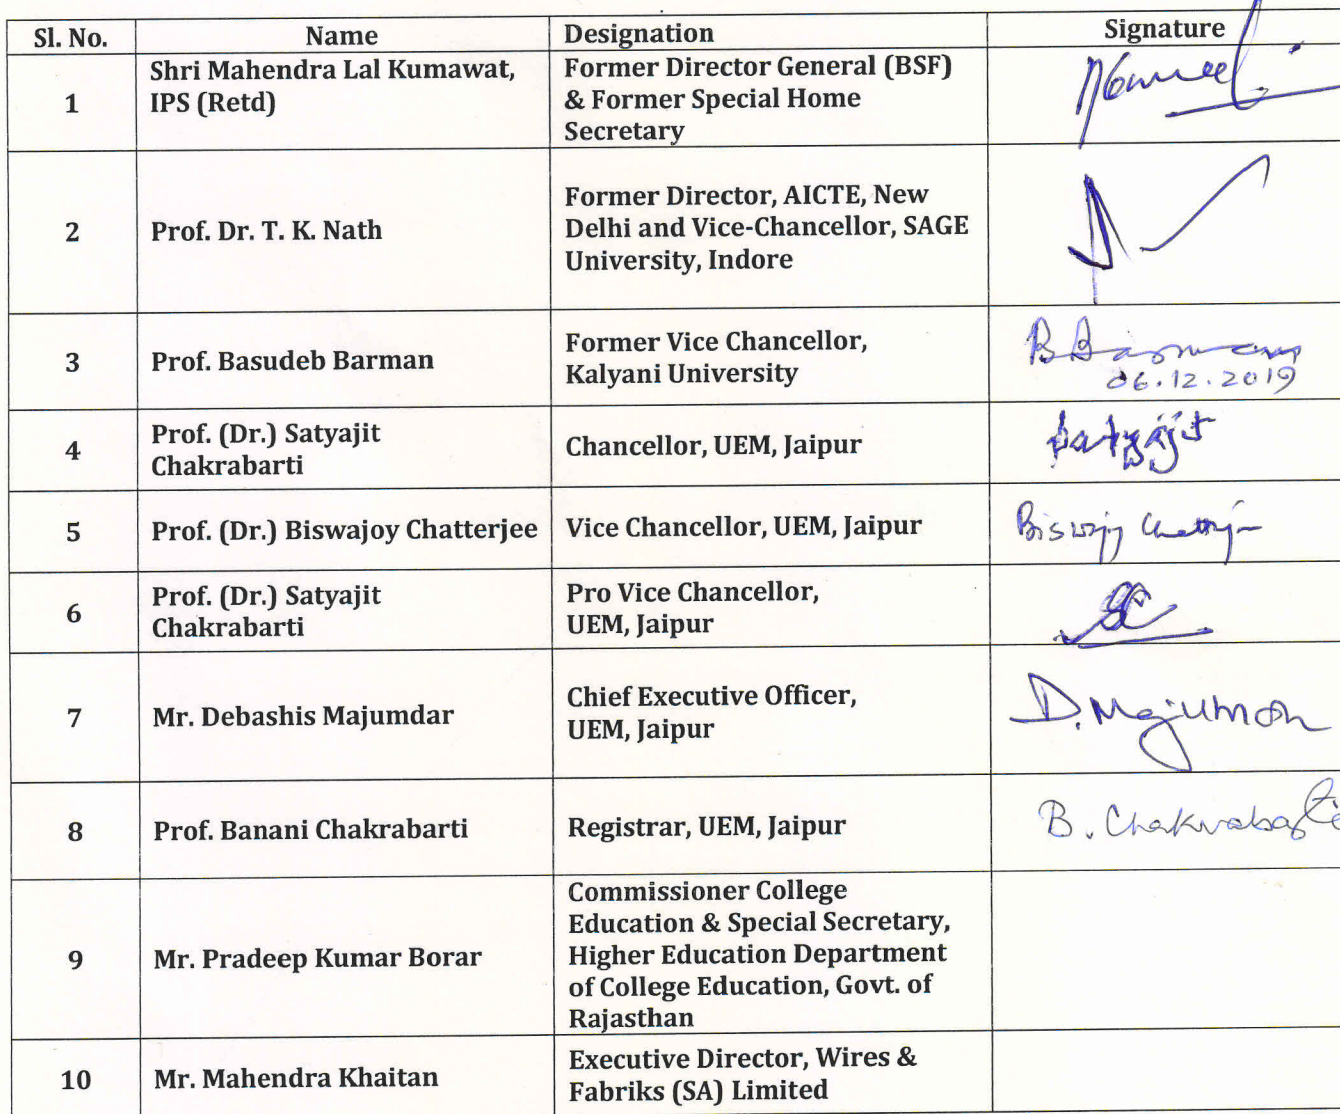 Sl. No. Name Designation Signature
1 Shri Mahendra Lal Kumawat, Former Director General (BSF)
IPS (Retd) & Former Special Home
Secretary
2 Prof. Dr. T. K. Nath Former Director, AICTE, New
Delhi and Vice-Chancellor, SAGE
University, Indore
3 Prof. Basudeb Barman Former Vice Chancellor, B Barman
Kalyani University 06.12.2019
4 Prof. (Dr.) Satyajit Chancellor, UEM, Jaipur Satyajit
Chakrabarti
5 Prof. (Dr.) Biswajoy Chatterjee Vice Chancellor, UEM, Jaipur Biswajoy Chatterjee
6 Prof. (Dr.) Satyajit Pro Vice Chancellor, SC
Chakrabarti UEM, Jaipur
7 Mr. Debashis Majumdar Chief Executive Officer, D. Majumdar
UEM, Jaipur
8 Prof. Banani Chakrabarti Registrar, UEM, Jaipur B. Chakrabarti
9 Mr. Pradeep Kumar Borar Commissioner College
Education & Special Secretary,
Higher Education Department
of College Education, Govt. of
Rajasthan
10 Mr. Mahendra Khaitan Executive Director, Wires &
Fabriks (SA) Limited